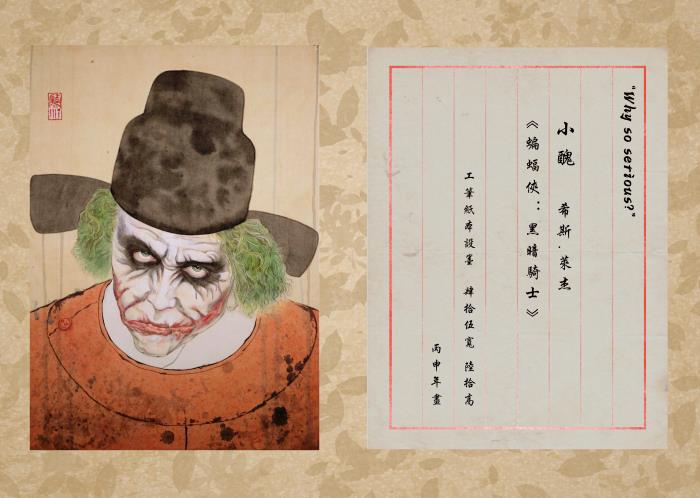 "Why so serious?"
小醜 希斯.萊杰
《蝙蝠俠:黑暗騎士》
工筆紙本設墨 肆拾伍寬 陸拾高
丙申年畫